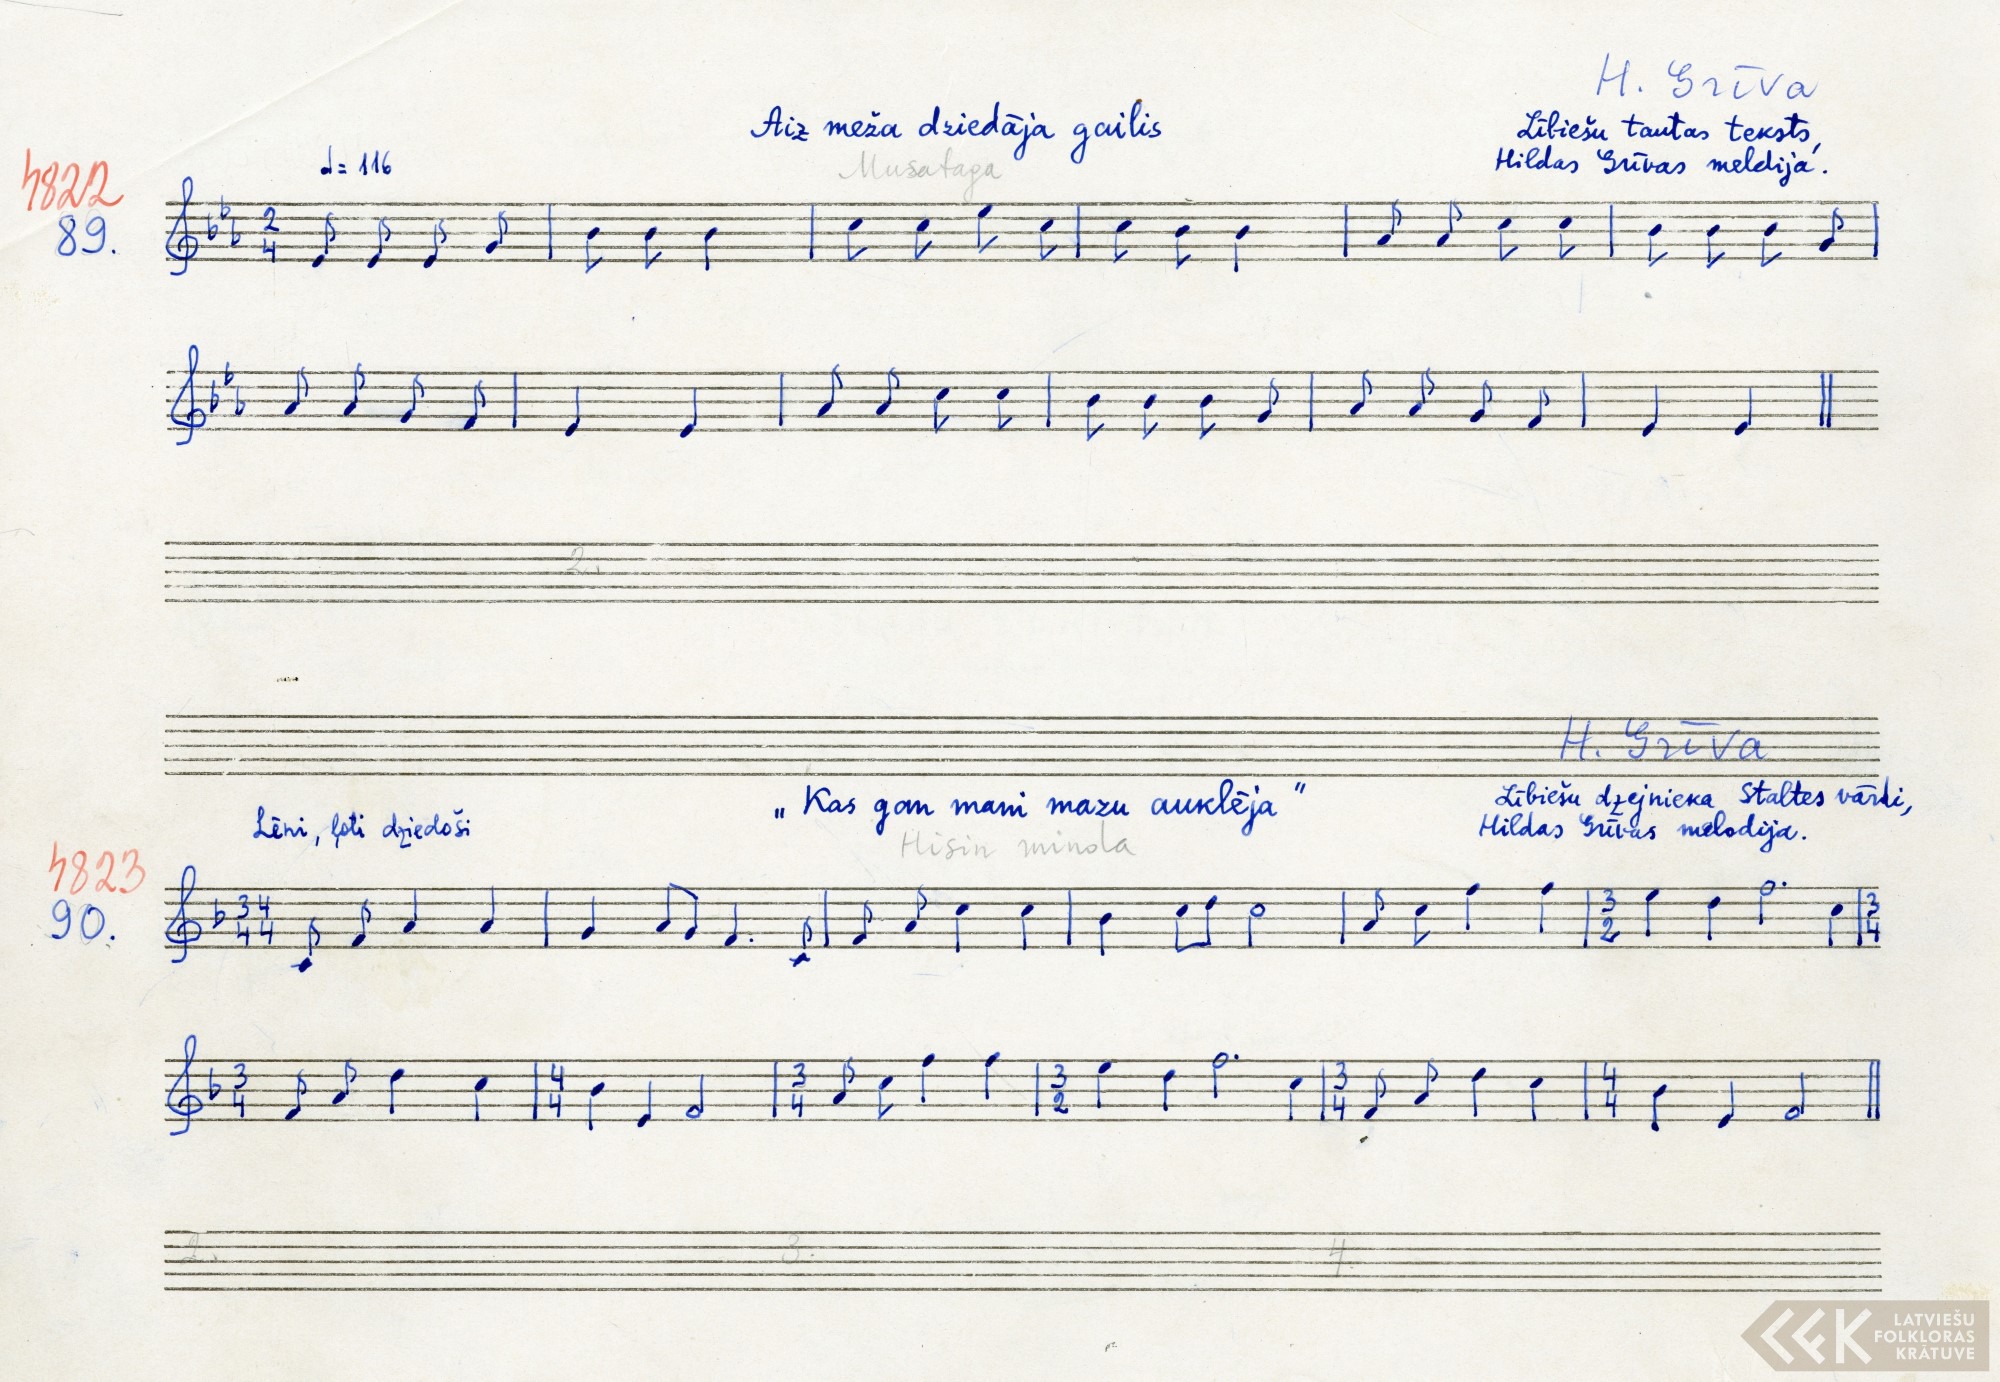 H. Grīva
Aiz meža dziedāja gailis
Lībiešu tautas teksts,
♩= 116
Mušataga
Hildas Grīvas meldija.
4822
89.
2
4
2.
H. Grīva
„Kas gan mani mazu auklēja"
Lībiešu dzejnieka Staltes vārdi,
Lēni, ļoti dziedoši
Hisin minola
Hildas Grīvas melodija.
4823
90.
3 4 3 3
4 4 2 4
3 4 3 3 3 4
4 4 4 2 4 4
2. 3. 4.
LATVIEŠU
FOLKLORAS
KRĀTUVE